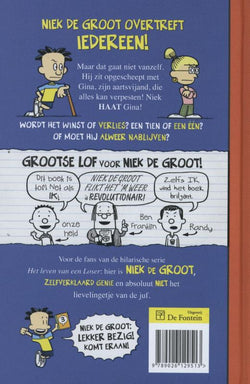 NIEK DE GROOT OVERTREFT
IEDEREEN!
Maar dat gaat niet vanzelf.
Hij zit opgescheept met
Gina, zijn aartsvijand, die
alles kan verpesten! Niek
HAAT Gina!
WORDT HET WINST OF VERLIES? EEN TIEN OF EEN EEN?
OF MOET HIJ ALWEER NABLIJVEN?
GROOTSE LOF VOOR NIEK DE GROOT!
Dit boek is
tof! Net als
IK!
NIEK DE GROOT
FLIKT HET 'M WEER.
REVOLUTIONAIR!
Zelfs IK
vind het boek
briljant.
onze
held
Ben
Franklin
Randy
Voor de fans van de hilarische serie
Het leven van een Loser: hier is NIEK DE GROOT,
ZELFVERKLAARD GENIE en absoluut NIET het
lievelingetje van de juf.
NIEK DE GROOT:
LEKKER BEZIG!
KOMT ERAAN!
Uitgeverij
De Fontein
9789026129513